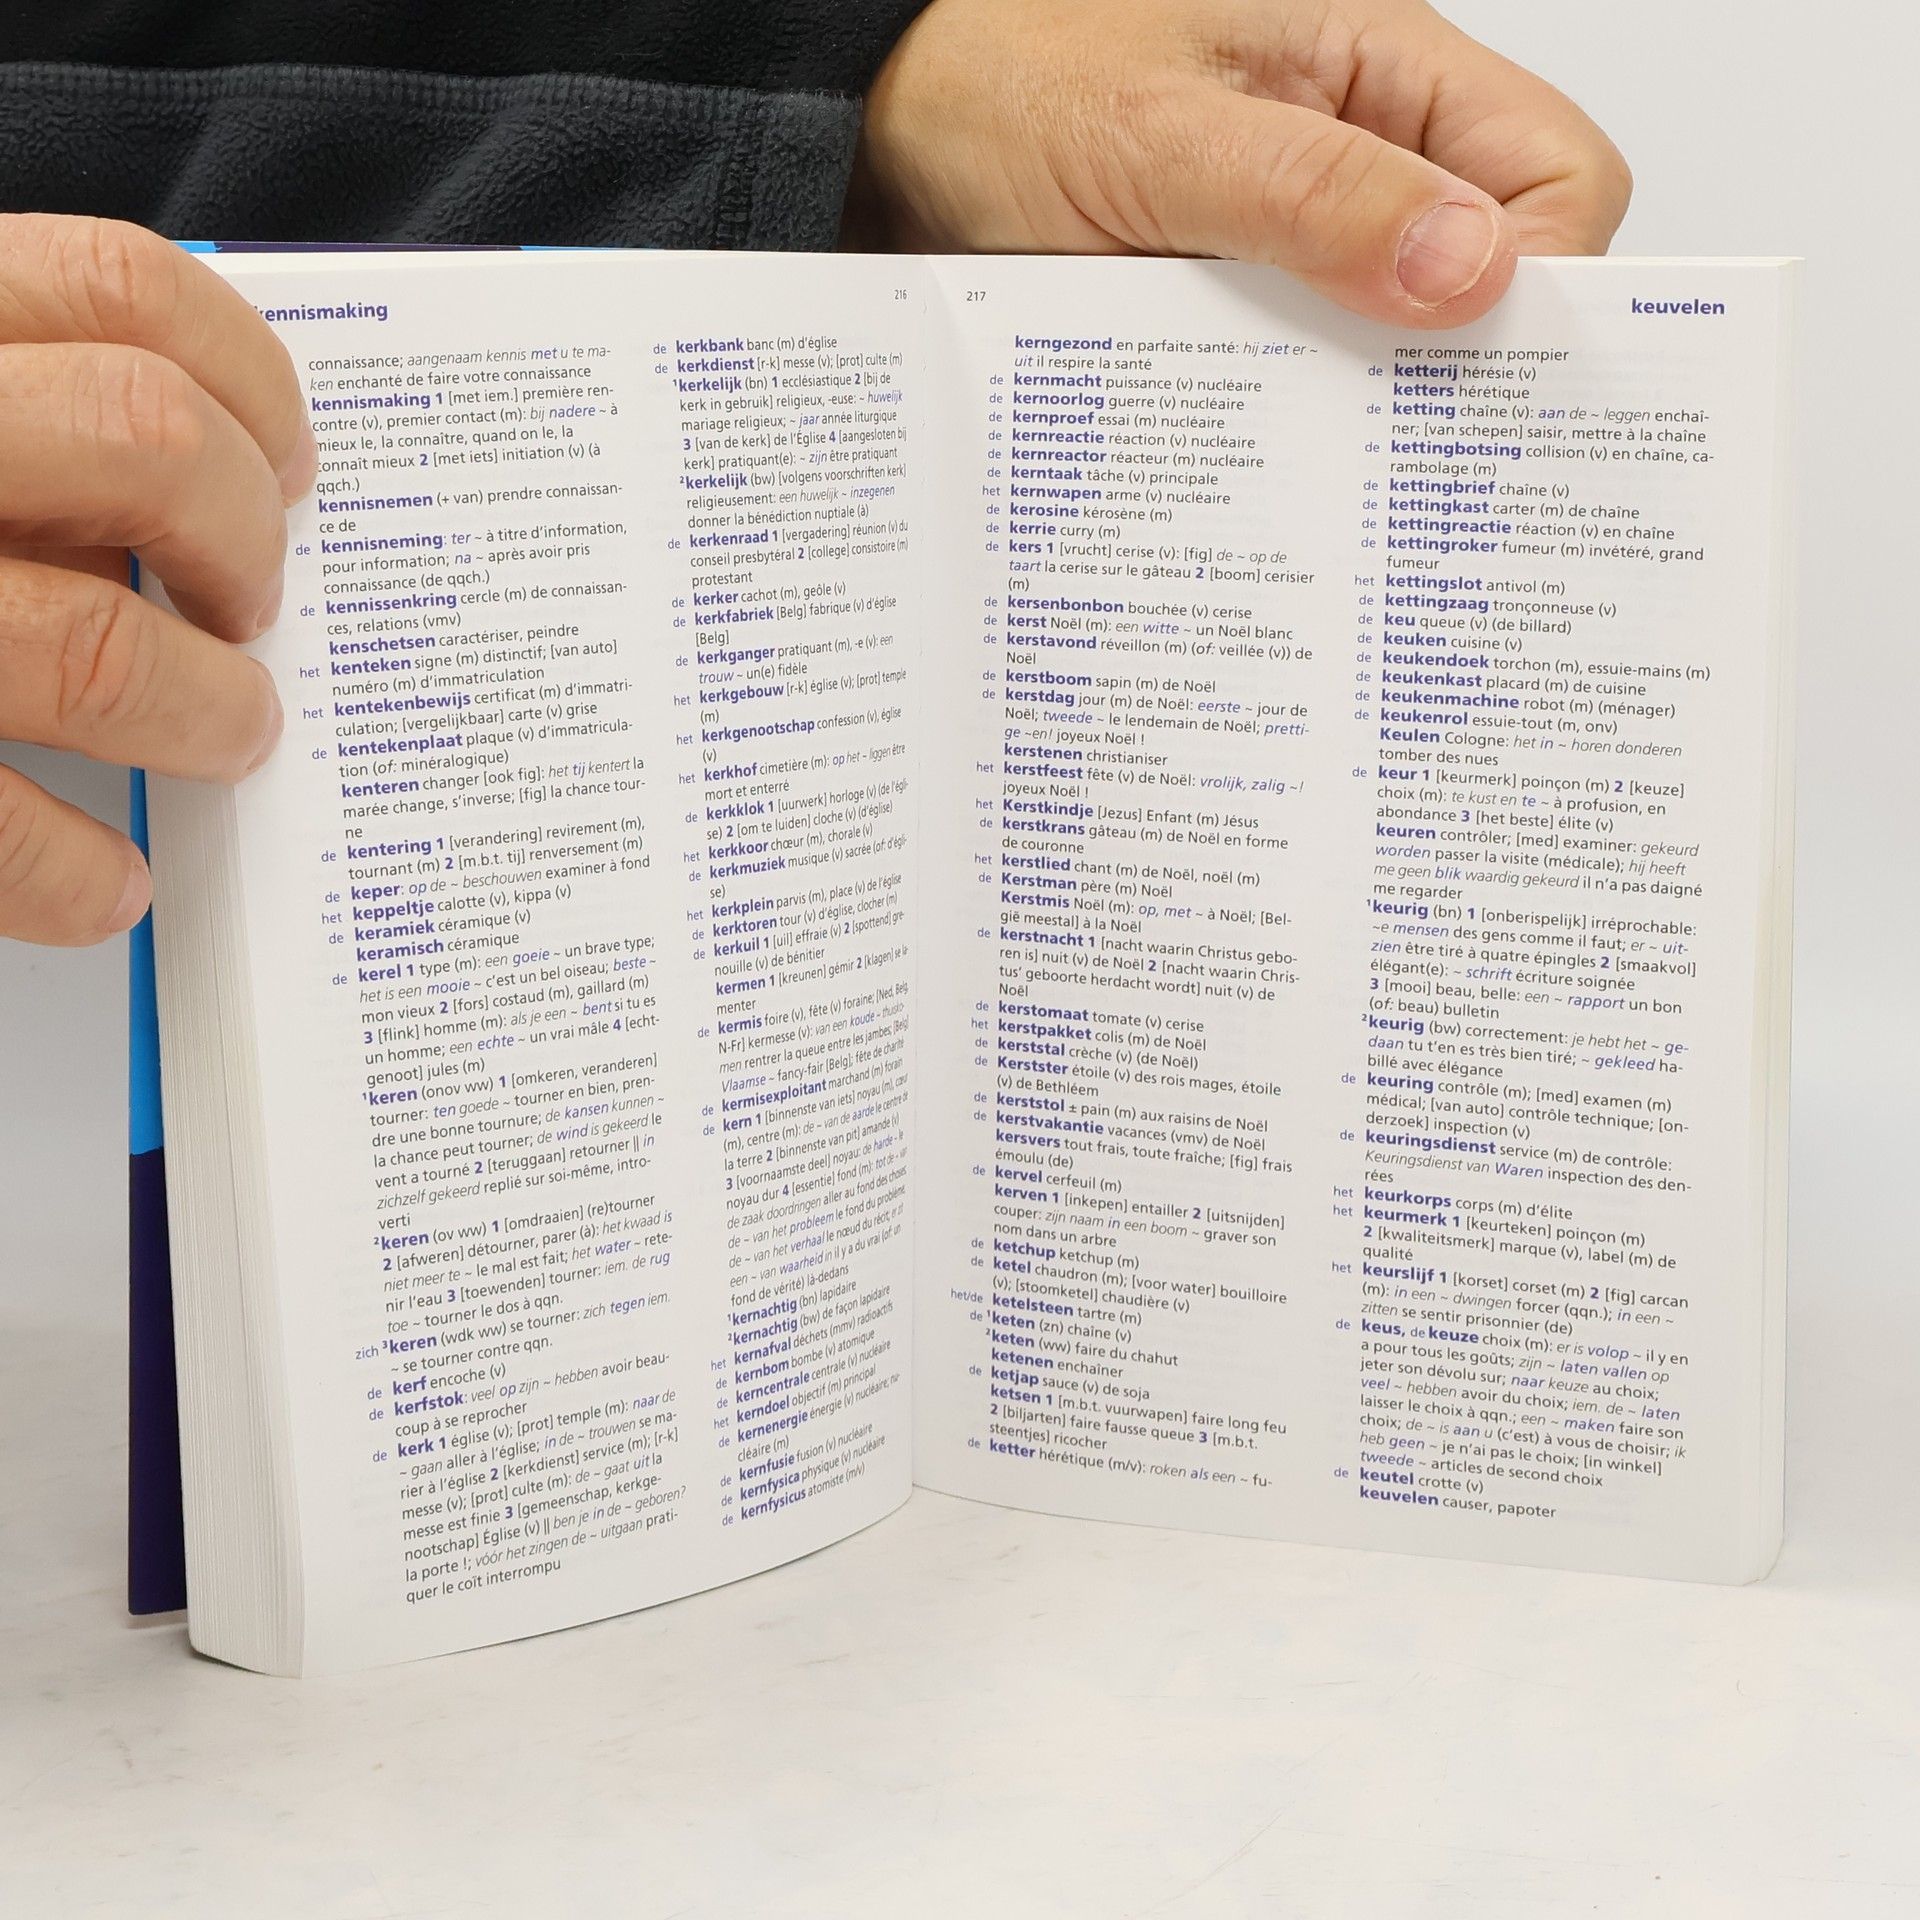 kennismaking
216
connaissance; aangenaam kennis met u te ma-
ken enchanté de faire votre connaissance
kennismaking 1 [met iem.] première ren-
contre (v), premier contact (m): bij nadere ~ à
mieux le, la connaître, quand on le, la
connaît mieux 2 [met iets] initiation (v) (à
qqch.)
kennisnemen (+ van) prendre connaissan-
ce de
de kennisneming: ter ~ à titre d'information,
pour information; na ~ après avoir pris
connaissance (de qqch.)
de kennissenkring cercle (m) de connaissan-
ces, relations (vmv)
kenschetsen caractériser, peindre
het kenteken signe (m) distinctif; [van auto]
numéro (m) d'immatriculation
het kentekenbewijs certificat (m) d'immatri-
culation; [vergelijkbaar] carte (v) grise
de kentekenplaat plaque (v) d'immatricula-
tion (of: minéralogique)
kenteren changer [ook fig]: het tij kentert la
marée change, s'inverse; [fig] la chance tour-
ne
de kentering 1 [verandering] revirement (m),
tournant (m) 2 [m.b.t. tij] renversement (m)
de keper: op de ~ beschouwen examiner à fond
het keppeltje calotte (v), kippa (v)
de keramiek céramique (v)
keramisch céramique
de kerel 1 type (m): een goeie ~ un brave type;
het is een mooie ~ c'est un bel oiseau; beste ~
mon vieux 2 [fors] costaud (m), gaillard (m)
3 [flink] homme (m): als je een ~ bent si tu es
un homme; een echte ~ un vrai mâle 4 [echt-
genoot] jules (m)
¹keren (onov ww) 1 [omkeren, veranderen]
tourner: ten goede ~ tourner en bien, pren-
dre une bonne tournure; de kansen kunnen ~
la chance peut tourner; de wind is gekeerd le
vent a tourné 2 [teruggaan] retourner || in
zichzelf gekeerd replié sur soi-même, intro-
verti
²keren (ov ww) 1 [omdraaien] (re)tourner
2 [afweren] détourner, parer (à): het kwaad is
niet meer te ~ le mal est fait; het water ~ rete-
nir l'eau 3 [toewenden] tourner: iem. de rug
toe ~ tourner le dos à qqn.
zich ³keren (wdk ww) se tourner: zich tegen iem.
~ se tourner contre qqn.
de kerf encoche (v)
de kerfstok: veel op zijn ~ hebben avoir beau-
coup à se reprocher
de kerk 1 église (v); [prot] temple (m): naar de
~ gaan aller à l'église; in de ~ trouwen se ma-
rier à l'église 2 [kerkdienst] service (m); [r-k]
messe (v); [prot] culte (m): de ~ gaat uit la
messe est finie 3 [gemeenschap, kerkge-
nootschap] Église (v) || ben je in de ~ geboren?
la porte !; vóór het zingen de ~ uitgaan prati-
quer le coït interrompu
de kerkbank banc (m) d'église
de kerkdienst [r-k] messe (v); [prot] culte (m)
¹kerkelijk (bn) 1 ecclésiastique 2 [bij de
kerk in gebruik] religieux, -euse: ~ huwelijk
mariage religieux; ~ jaar année liturgique
3 [van de kerk] de l'Église 4 [aangesloten bij
kerk] pratiquant(e): ~ zijn être pratiquant
²kerkelijk (bw) [volgens voorschriften kerk]
religieusement: een huwelijk ~ inzegenen
donner la bénédiction nuptiale (à)
de kerkenraad 1 [vergadering] réunion (v) du
conseil presbytéral 2 [college] consistoire (m)
protestant
de kerker cachot (m), geôle (v)
de kerkfabriek [Belg] fabrique (v) d'église
[Belg]
de kerkganger pratiquant (m), -e (v): een
trouw ~ un(e) fidèle
het kerkgebouw [r-k] église (v); [prot] temple
(m)
het kerkgenootschap confession (v), église
(v)
het kerkhof cimetière (m): op het ~ liggen être
mort et enterré
de kerkklok 1 [uurwerk] horloge (v) (de l'égli-
se) 2 [om te luiden] cloche (v) (d'église)
het kerkkoor chœur (m), chorale (v)
de kerkmuziek musique (v) sacrée (of: d'égli-
se)
het kerkplein parvis (m), place (v) de l'église
de kerktoren tour (v) d'église, clocher (m)
de kerkuil 1 [uil] effraie (v) 2 [spottend] gre-
nouille (v) de bénitier
kermen 1 [kreunen] gémir 2 [klagen] se la-
menter
de kermis foire (v), fête (v) foraine; [Ned, Belg,
N-Fr] kermesse (v): van een koude ~ thuisko-
men rentrer la queue entre les jambes; [Belg]
Vlaamse ~ fancy-fair [Belg]; fête de charité
de kermisexploitant marchand (m) forain
de kern 1 [binnenste van iets] noyau (m), cœur
(m), centre (m): de ~ van de aarde le centre de
la terre 2 [binnenste van pit] amande (v)
3 [voornaamste deel] noyau: de harde ~ le
noyau dur 4 [essentie] fond (m): tot de ~ van
de zaak doordringen aller au fond des choses
de ~ van het probleem le fond du problème
de ~ van het verhaal le nœud du récit; er zit
een ~ van waarheid in il y a du vrai (of: un
fond de vérité) là-dedans
¹kernachtig (bn) lapidaire
²kernachtig (bw) de façon lapidaire
het kernafval déchets (mmv) radioactifs
de kernbom bombe (v) atomique
de kerncentrale centrale (v) nucléaire
het kerndoel objectif (m) principal
de kernenergie énergie (v) nucléaire; nu-
cléaire (m)
de kernfusie fusion (v) nucléaire
de kernfysica physique (v) nucléaire
de kernfysicus atomiste (m/v)
217
keuvelen
kerngezond en parfaite santé: hij ziet er ~
uit il respire la santé
de kernmacht puissance (v) nucléaire
de kernoorlog guerre (v) nucléaire
de kernproef essai (m) nucléaire
de kernreactie réaction (v) nucléaire
de kernreactor réacteur (m) nucléaire
de kerntaak tâche (v) principale
het kernwapen arme (v) nucléaire
de kerosine kérosène (m)
de kerrie curry (m)
de kers 1 [vrucht] cerise (v): [fig] de ~ op de
taart la cerise sur le gâteau 2 [boom] cerisier
(m)
de kersenbonbon bouchée (v) cerise
de kerst Noël (m): een witte ~ un Noël blanc
de kerstavond réveillon (m) (of: veillée (v)) de
Noël
de kerstboom sapin (m) de Noël
de kerstdag jour (m) de Noël: eerste ~ jour de
Noël; tweede ~ le lendemain de Noël; pretti-
ge ~en! joyeux Noël !
kerstenen christianiser
het kerstfeest fête (v) de Noël: vrolijk, zalig ~!
joyeux Noël !
het Kerstkindje [Jezus] Enfant (m) Jésus
de kerstkrans gâteau (m) de Noël en forme
de couronne
het kerstlied chant (m) de Noël, noël (m)
de Kerstman père (m) Noël
Kerstmis Noël (m): op, met ~ à Noël; [Bel-
gië meestal] à la Noël
de kerstnacht 1 [nacht waarin Christus gebo-
ren is] nuit (v) de Noël 2 [nacht waarin Chris-
tus' geboorte herdacht wordt] nuit (v) de
Noël
de kerstomaat tomate (v) cerise
het kerstpakket colis (m) de Noël
de kerststal crèche (v) (de Noël)
de Kerstster étoile (v) des rois mages, étoile
(v) de Bethléem
de kerststol ± pain (m) aux raisins de Noël
de kerstvakantie vacances (vmv) de Noël
kersvers tout frais, toute fraîche; [fig] frais
émoulu (de)
de kervel cerfeuil (m)
kerven 1 [inkepen] entailler 2 [uitsnijden]
couper: zijn naam in een boom ~ graver son
nom dans un arbre
de ketchup ketchup (m)
de ketel chaudron (m); [voor water] bouilloire
(v); [stoomketel] chaudière (v)
het/de ketelsteen tartre (m)
de ¹keten (zn) chaîne (v)
²keten (ww) faire du chahut
ketenen enchaîner
de ketjap sauce (v) de soja
ketsen 1 [m.b.t. vuurwapen] faire long feu
2 [biljarten] faire fausse queue 3 [m.b.t.
steentjes] ricocher
de ketter hérétique (m/v): roken als een ~ fu-
mer comme un pompier
de ketterij hérésie (v)
ketters hérétique
de ketting chaîne (v): aan de ~ leggen enchaî-
ner; [van schepen] saisir, mettre à la chaîne
de kettingbotsing collision (v) en chaîne, ca-
rambolage (m)
de kettingbrief chaîne (v)
de kettingkast carter (m) de chaîne
de kettingreactie réaction (v) en chaîne
de kettingroker fumeur (m) invétéré, grand
fumeur
het kettingslot antivol (m)
de kettingzaag tronçonneuse (v)
de keu queue (v) (de billard)
de keuken cuisine (v)
de keukendoek torchon (m), essuie-mains (m)
de keukenkast placard (m) de cuisine
de keukenmachine robot (m) (ménager)
de keukenrol essuie-tout (m, onv)
Keulen Cologne: het in ~ horen donderen
tomber des nues
de keur 1 [keurmerk] poinçon (m) 2 [keuze]
choix (m): te kust en te ~ à profusion, en
abondance 3 [het beste] élite (v)
keuren contrôler; [med] examiner: gekeurd
worden passer la visite (médicale); hij heeft
me geen blik waardig gekeurd il n'a pas daigné
me regarder
¹keurig (bn) 1 [onberispelijk] irréprochable:
~e mensen des gens comme il faut; er ~ uit-
zien être tiré à quatre épingles 2 [smaakvol]
élégant(e): ~ schrift écriture soignée
3 [mooi] beau, belle: een ~ rapport un bon
(of: beau) bulletin
²keurig (bw) correctement: je hebt het ~ ge-
daan tu t'en es très bien tiré; ~ gekleed ha-
billé avec élégance
de keuring contrôle (m); [med] examen (m)
médical; [van auto] contrôle technique; [on-
derzoek] inspection (v)
de keuringsdienst service (m) de contrôle:
Keuringsdienst van Waren inspection des den-
rées
het keurkorps corps (m) d'élite
het keurmerk 1 [keurteken] poinçon (m)
2 [kwaliteitsmerk] marque (v), label (m) de
qualité
het keurslijf 1 [korset] corset (m) 2 [fig] carcan
(m): in een ~ dwingen forcer (qqn.); in een ~
zitten se sentir prisonnier (de)
de keus, de keuze choix (m): er is volop ~ il y en
a pour tous les goûts; zijn ~ laten vallen op
jeter son dévolu sur; naar keuze au choix;
veel ~ hebben avoir du choix; iem. de ~ laten
laisser le choix à qqn.; een ~ maken faire son
choix; de ~ is aan u (c'est) à vous de choisir; ik
heb geen ~ je n'ai pas le choix; [in winkel]
tweede ~ articles de second choix
de keutel crotte (v)
keuvelen causer, papoter